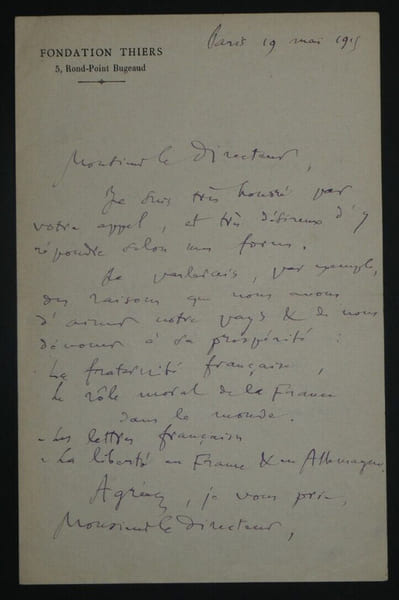 FONDATION THIERS
5, Rond-Point Bugeaud
Paris 19 mai 1915
Monsieur le Directeur,
Je suis très honoré par
votre appel, et très désireux d'y
répondre selon mes forces.
Je parlerais, par exemple,
des raisons que nous avons
d'aimer notre pays & de nous
dévouer à sa prospérité :
- La fraternité française,
- Le rôle moral de la France
dans le monde.
- Les lettres françaises
- La liberté en France & en Allemagne.
Agréez, je vous prie,
Monsieur le Directeur,